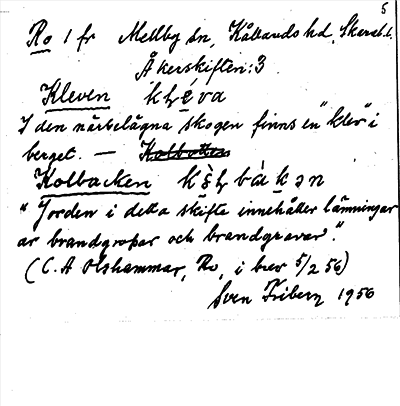 5
Ro 1 fr Mellby sn, Kållands hd, Skarab. l.
Åkerskiften: 3
Kleven
I den närbelägna skogen finns en "klev" i
berget. — Kolbotten
Kolbacken
"Jorden i detta skifte innehåller lämningar
av brandgropar och brandgravar".
(C. A Olshammar, Ro, i brev 5/2 56)
Sven Friberg 1956